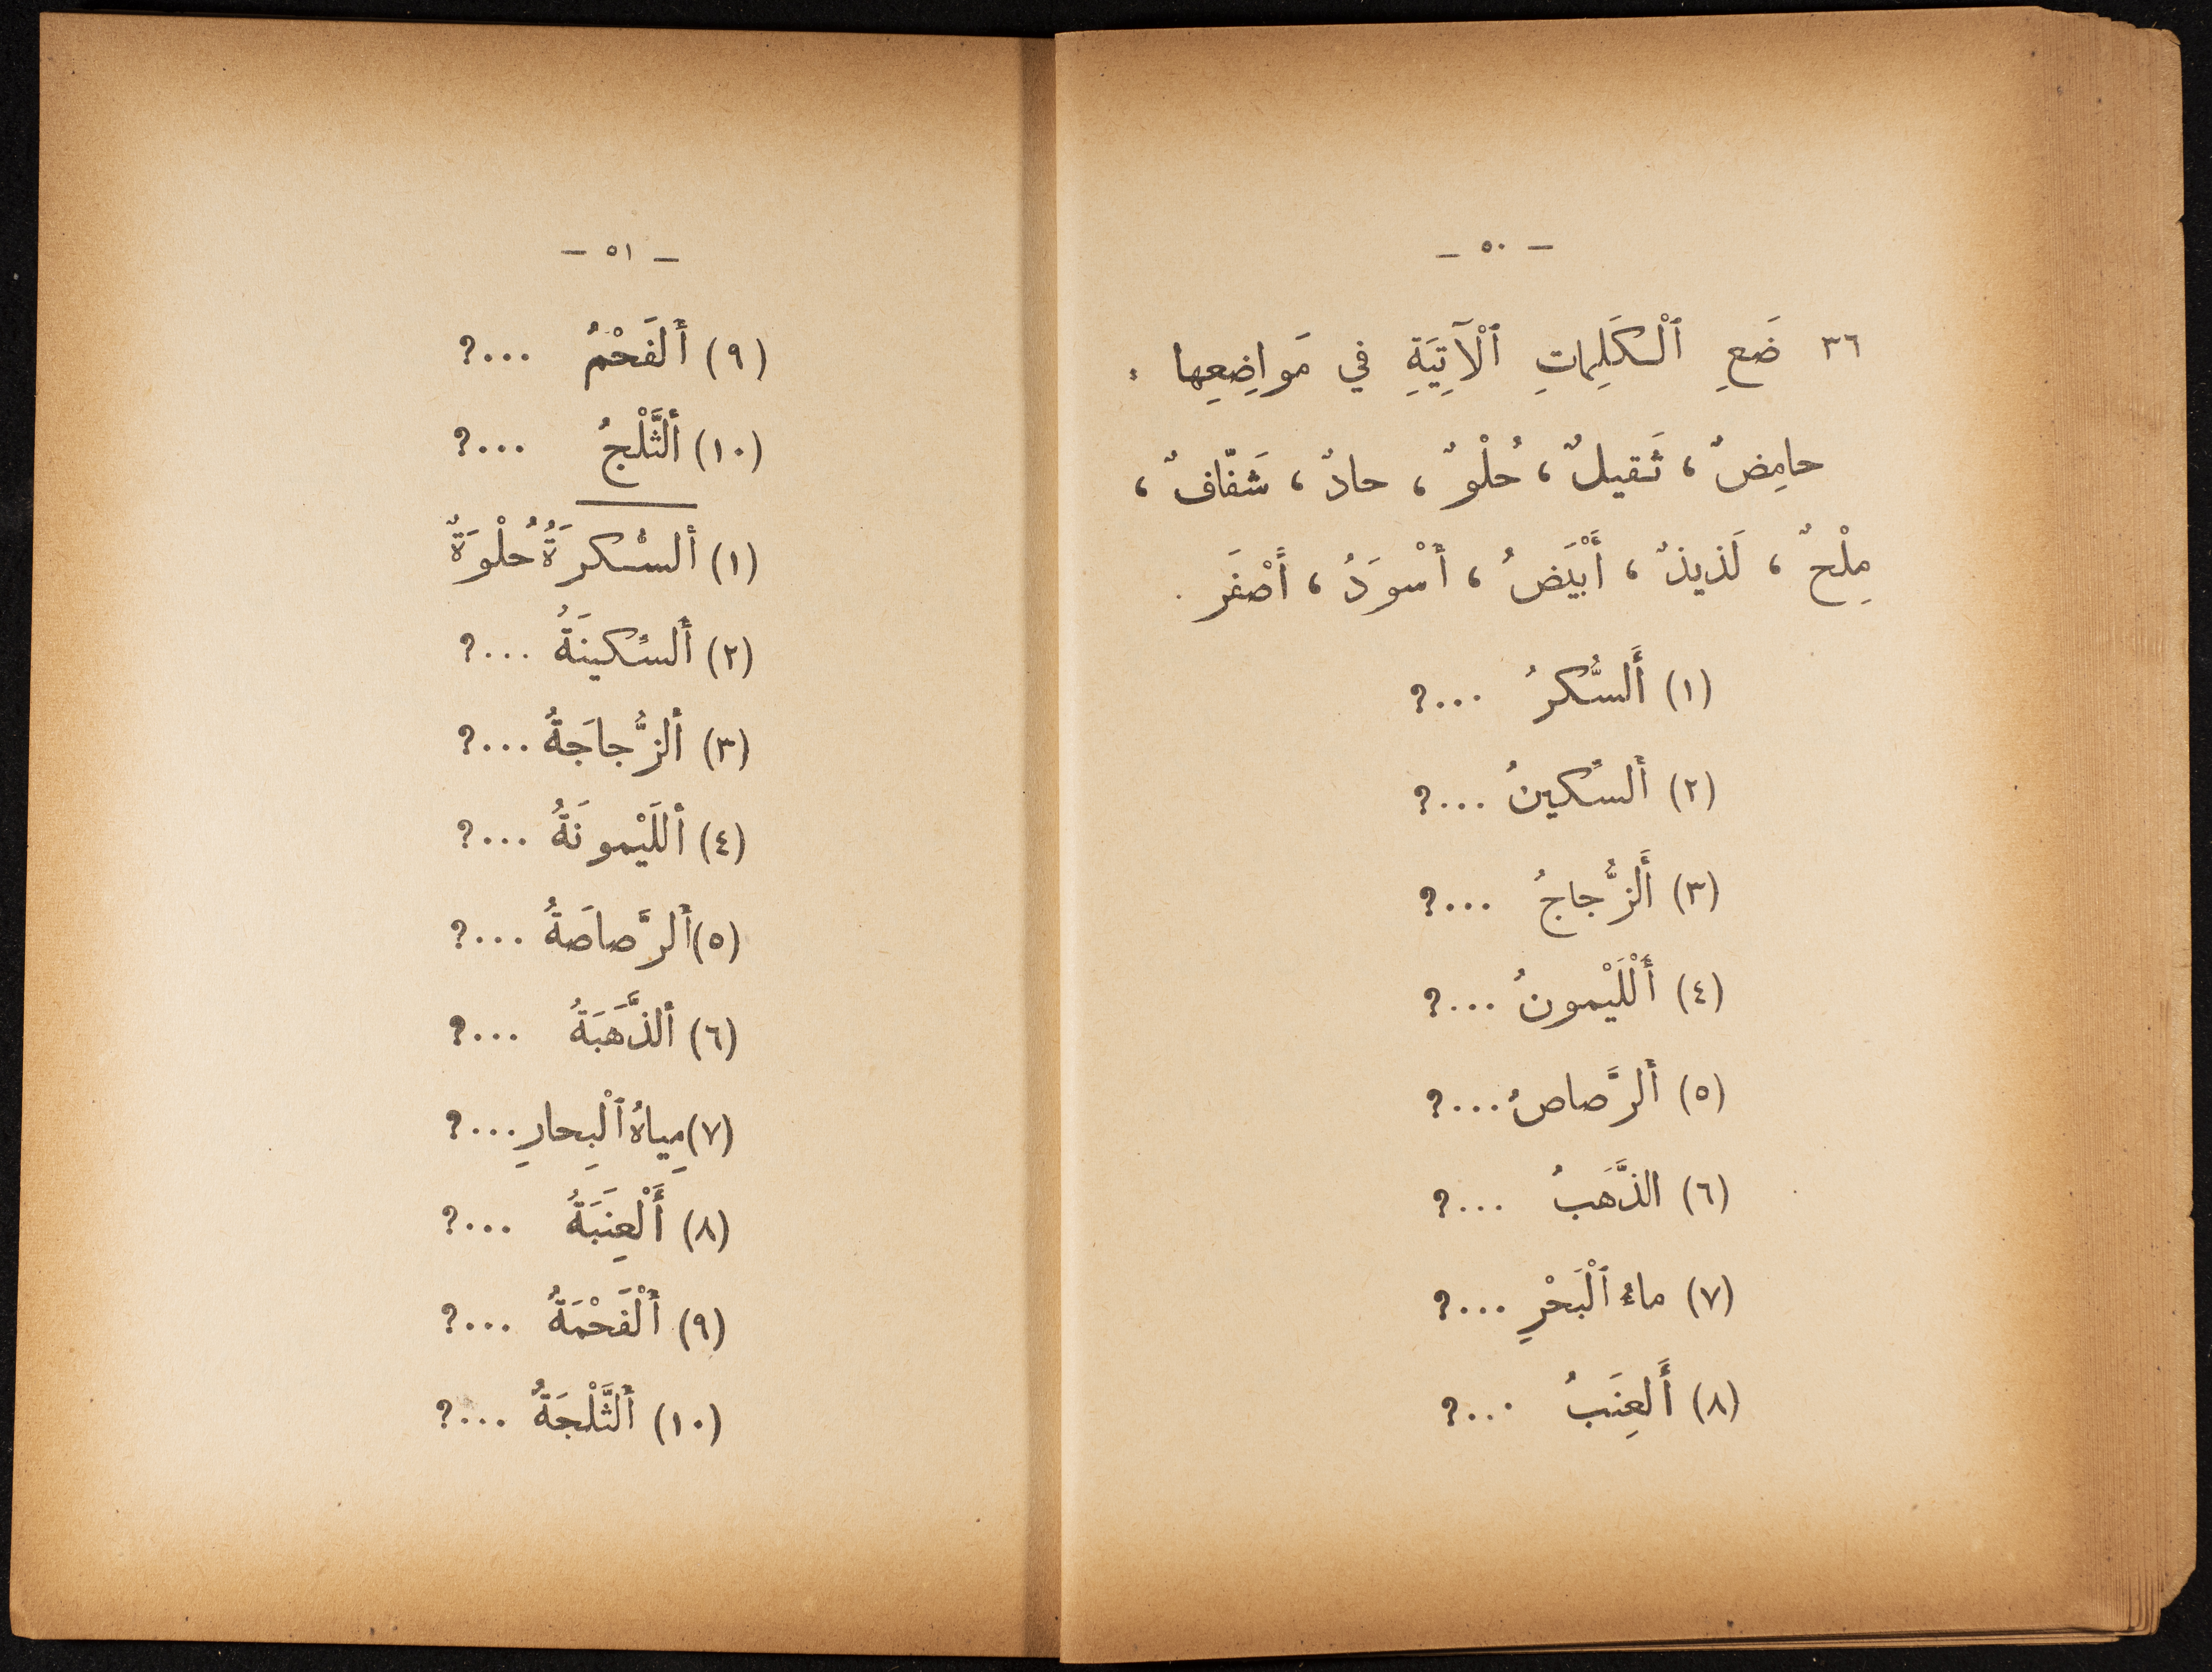 — ٥٠ —
٣٦ ضَعِ ٱلْكَلِماتِ ٱلْآتِيَةِ في مَواضِعِها :
حامِضٌ ، ثَقيلٌ ، حُلْوٌ ، حادٌ ، شَفّافٌ ،
مِلْحٌ ، لَذيذٌ ، أَبْيَضُ ، أَسْوَدُ ، أَصْفَر .
(١) أَلسُّكرُ ...؟
(٢) أَلسِّكينُ ...؟
(٣) أَلزُّجاجُ ...؟
(٤) أَلْلَيْمونُ ...؟
(٥) أَلرَّصاصُ ...؟
(٦) الذَّهَبُ ...؟
(٧) ماءُ ٱلْبَحْرِ ...؟
(٨) أَلعِنَبُ ...؟
— ٥١ —
(٩) أَلفَحْمُ ...؟
(١٠) أَلثَّلْجُ ...؟
(١) أَلسُّكرَةُ حُلْوَةٌ
(٢) أَلسِّكينَةُ ...؟
(٣) أَلزُّجاجَةُ ...؟
(٤) أَللَيْمونَةُ ...؟
(٥) أَلرَّصاصَةُ ...؟
(٦) أَلذَّهَبَةُ ...؟
(٧) مِياهُ ٱلْبِحارِ ...؟
(٨) أَلْعِنَبَةُ ...؟
(٩) أَلْفَحْمَةُ ...؟
(١٠) أَلثَّلْجَةُ ...؟